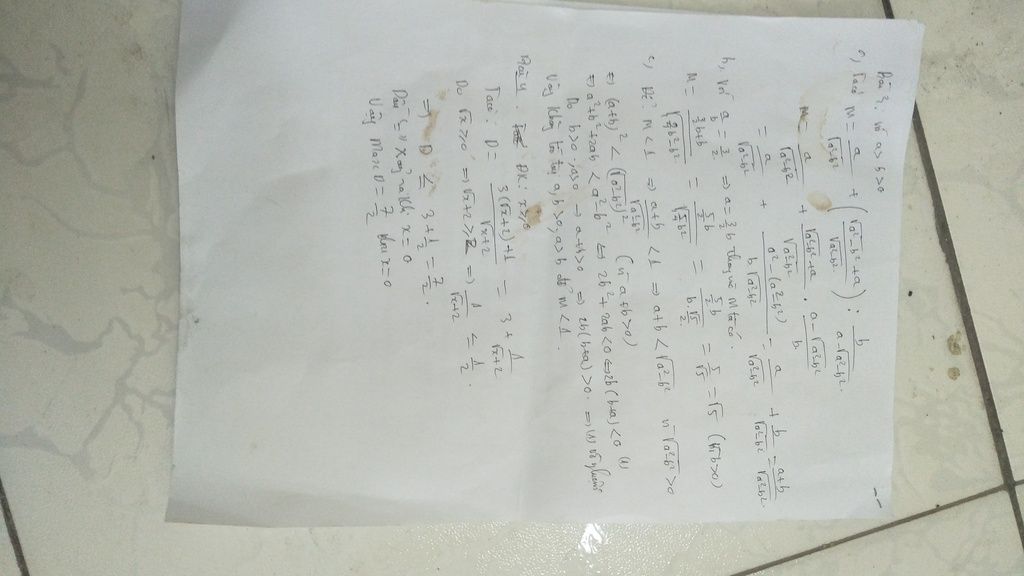 Bài 3, Với a > b > 0
a, Ta có M = a/√(a²-b²) + (√(a²-b²)+a)/√(a²-b²) : b/(a-√(a²-b²))
M = a/√(a²-b²) + (√(a²-b²)+a)/√(a²-b²) . (a-√(a²-b²))/b
= a/√(a²-b²) + (a²-(a²-b²))/(b.√(a²-b²)) = a/√(a²-b²) + b/√(a²-b²) = (a+b)/√(a²-b²)
b, Với a/b = 3/2 ⇒ a = 3/2 b thay vào M ta có.
M = (3/2 b+b)/√(9/4 b²-b²) = (5/2 b)/√(5/4 b²) = (5/2 b)/(b.√5/2) = 5/√5 = √5 (Vì b>0)
c, Để M < 1 ⇒ (a+b)/√(a²-b²) < 1 ⇒ a+b < √(a²-b²) vì √(a²-b²) > 0
⇔ (a+b)² < (√(a²-b²))² (vì a+b>0)
⇔ a²+b²+2ab < a²-b² ⇔ 2b²+2ab<0 ⇔ 2b(b+a)<0 (1)
Do b>0; a>0 ⇒ a+b>0 ⇒ 2b(b+a)>0. ⇒ (1) vô nghiệm
Vậy không tồn tại a,b>0, a>b để M < 1.
Bài 4. ĐK: x≥0
Ta có: D = (3(√x+2)+1)/(√x+2) = 3 + 1/(√x+2)
Do √x ≥0 ⇒ √x+2 ≥ 2 ⇒ 1/(√x+2) ≤ 1/2.
⇒ D ≤ 3+1/2 = 7/2.
Dấu "=" xảy ra khi x = 0
Vậy Max D = 7/2 khi x = 0